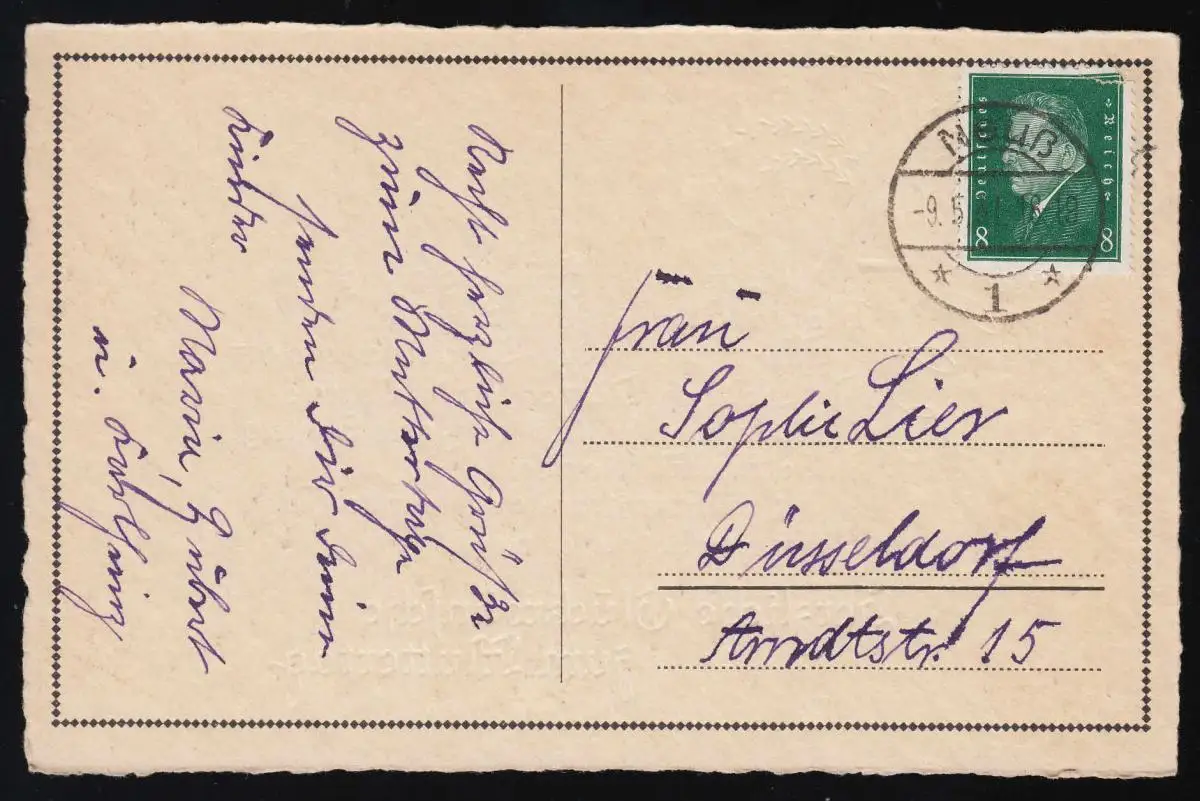 Recht herzliche Grüße
zum Muttertage
senden Dir Deine
Kinder
Maria, Hubert
u.
Deutsches Reich
8 8
NEUß
-9.5.
* 1 *
Frau
Sophie Lier
Düsseldorf
Arndtstr. 15